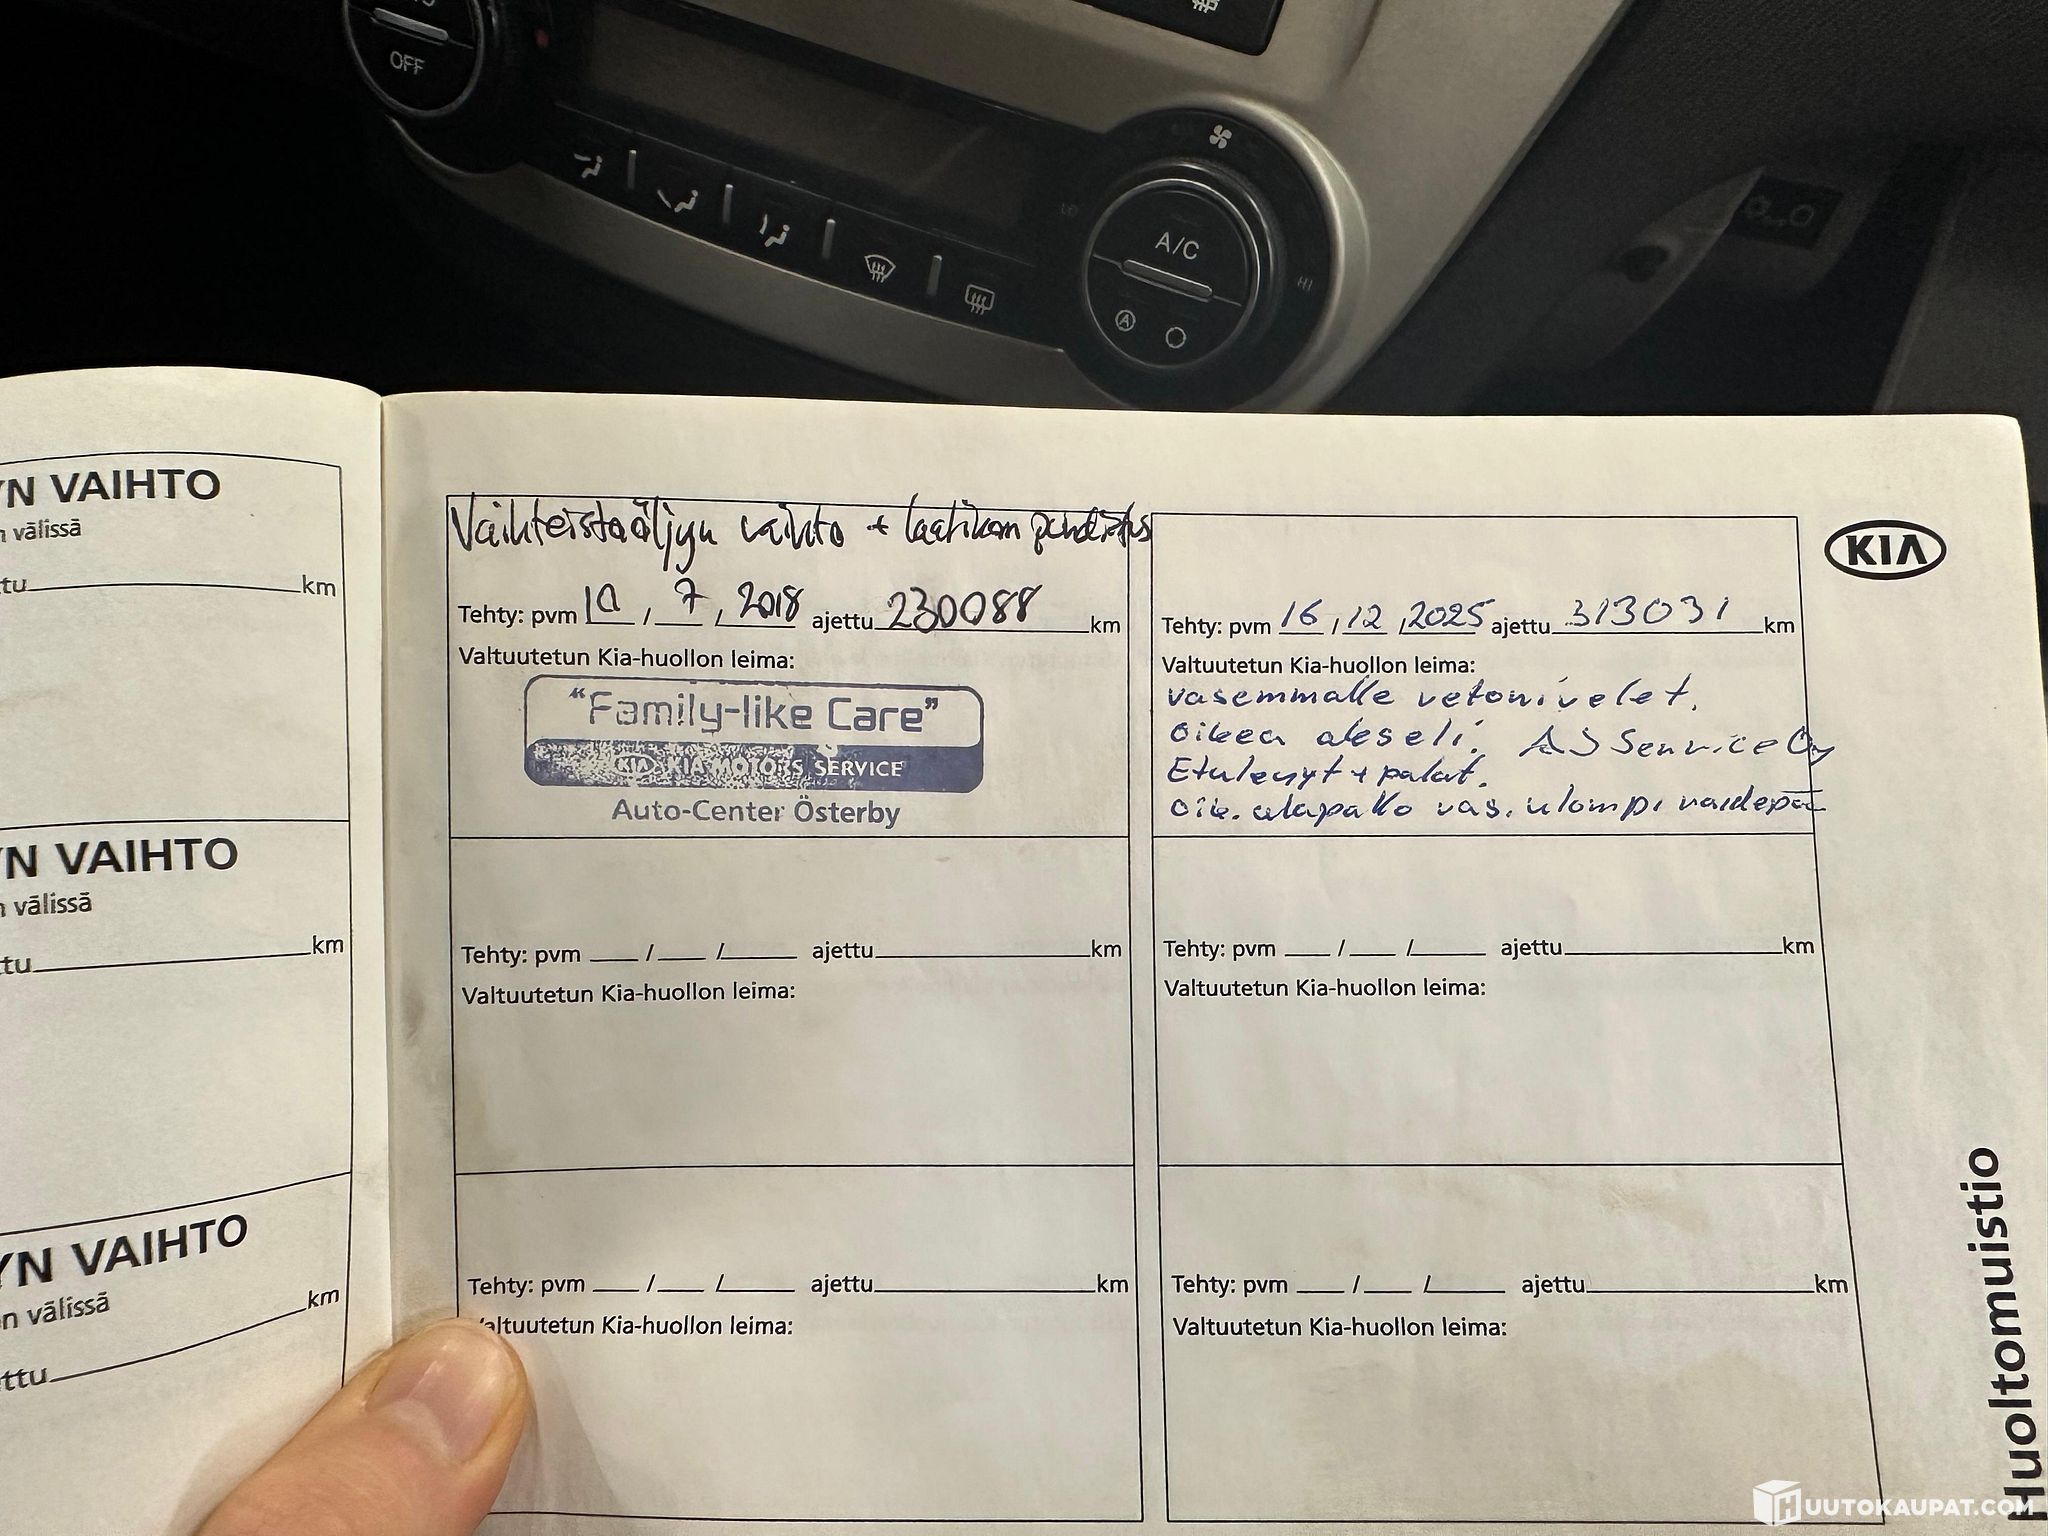 OFF
A/C
A
LO
HI
YN VAIHTO
n välissä
ttu km
YN VAIHTO
n välissä
ttu km
YN VAIHTO
n välissä
ettu km
Vaihteistoöljyn vaihto + laatikon puhdistus
Tehty: pvm 10 / 7 / 2018 ajettu 230088 km
Valtuutetun Kia-huollon leima:
"Family-like Care"
KIA KIA MOTORS SERVICE
Auto-Center Österby
Tehty: pvm / / ajettu km
Valtuutetun Kia-huollon leima:
Tehty: pvm / / ajettu km
Valtuutetun Kia-huollon leima:
Tehty: pvm 16 / 12 / 2025 ajettu 313031 km
Valtuutetun Kia-huollon leima:
vasemmalle vetonivelet.
oikea akseli. AJ Service Oy
Etulevyt + palat.
oik. alatukko vas. ulompi raidepää
Tehty: pvm / / ajettu km
Valtuutetun Kia-huollon leima:
Tehty: pvm / / ajettu km
Valtuutetun Kia-huollon leima:
KIA
Huoltomuistio
HUUTOKAUPAT.COM